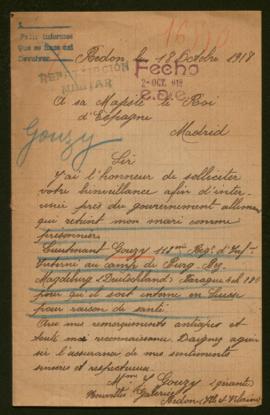 Para informes
Que se sirva
Devolver
Redon le 18 Octobre 1918
REPATRIACIÓN
MILITAR
Fecho
2-OCT. 918
A sa Majesté le Roi
d'Espagne
Madrid
Gouzy
Sir
J'ai l'honneur de solliciter
votre bienveillance afin d'inter-
près du gouvernement allemand
qui retient mon mari comme
prisonnier
Lieutenant Gouzy Reg. d'Inf
Interné au camp de Burg. Bez
Magdeburg (Deutschland) Baraque
pour qu'il soit interné en Suisse
pour raison de santé.
mes remerciements anticipés et
toute ma reconnaissance Daignez agréer
Sir l'assurance de mes sentiments
sincères et respectueux.
Mme Gouzy (gérante)
Nouvelles Galeries
Redon (Ille et Vilaine)